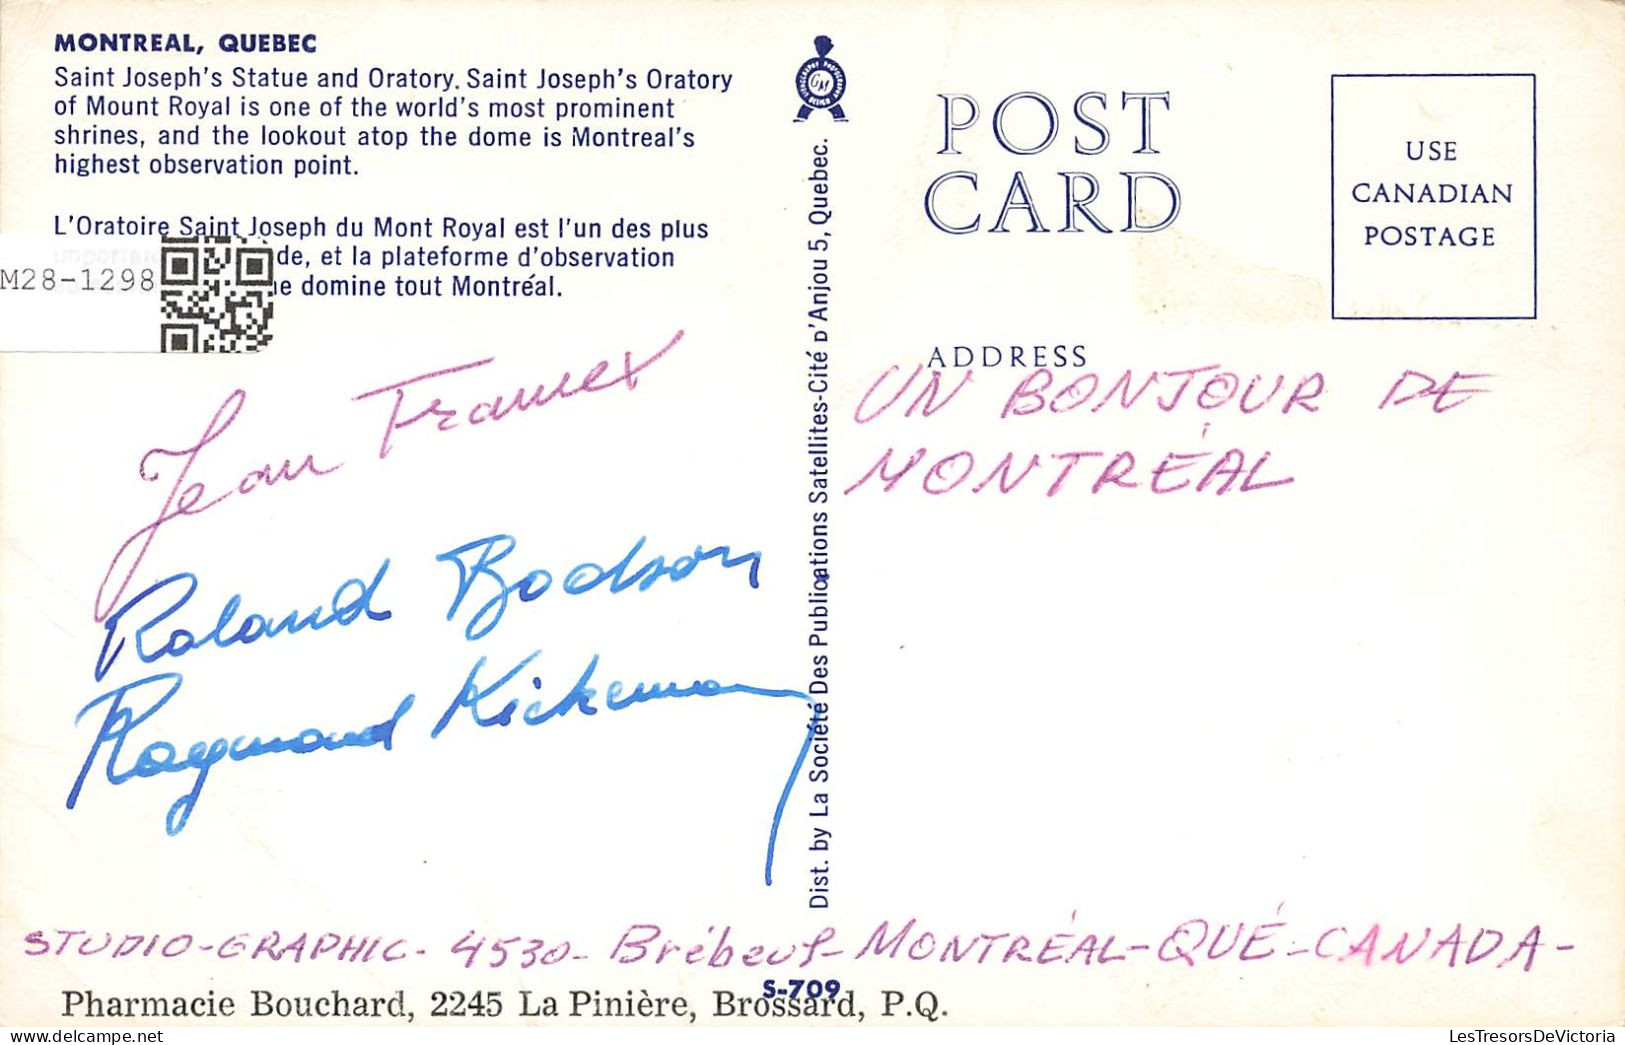 MONTREAL, QUEBEC
Saint Joseph's Statue and Oratory. Saint Joseph's Oratory
of Mount Royal is one of the world's most prominent
shrines, and the lookout atop the dome is Montreal's
highest observation point.
L'Oratoire Saint Joseph du Mont Royal est l'un des plus
de, et la plateforme d'observation
domine tout Montréal.
M28-1298
Jean
Roland Bodson
Raymond
Dist. by La Société Des Publications Satellites-Cité D'Anjou 5, Quebec.
POST
CARD
USE
CANADIAN
POSTAGE
ADDRESS
UN BONJOUR DE
MONTRÉAL
STUDIO-GRAPHIC- 4530- Brébeuf- MONTRÉAL-QUÉ-CANADA-
S-709
Pharmacie Bouchard, 2245 La Pinière, Brossard, P.Q.
LesTresorsDeVictoria